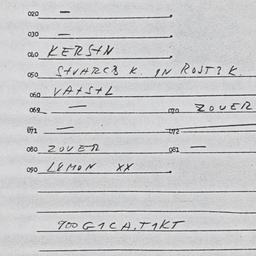 020 —
030 —
040 KERStN
050 StVARCB K. IN ROSTIK.
060 VAtStL
062 — 070 ZOUER
071 — 072
080 ZOUER 081 —
090 LEMON XX
900G1CA.T1KT